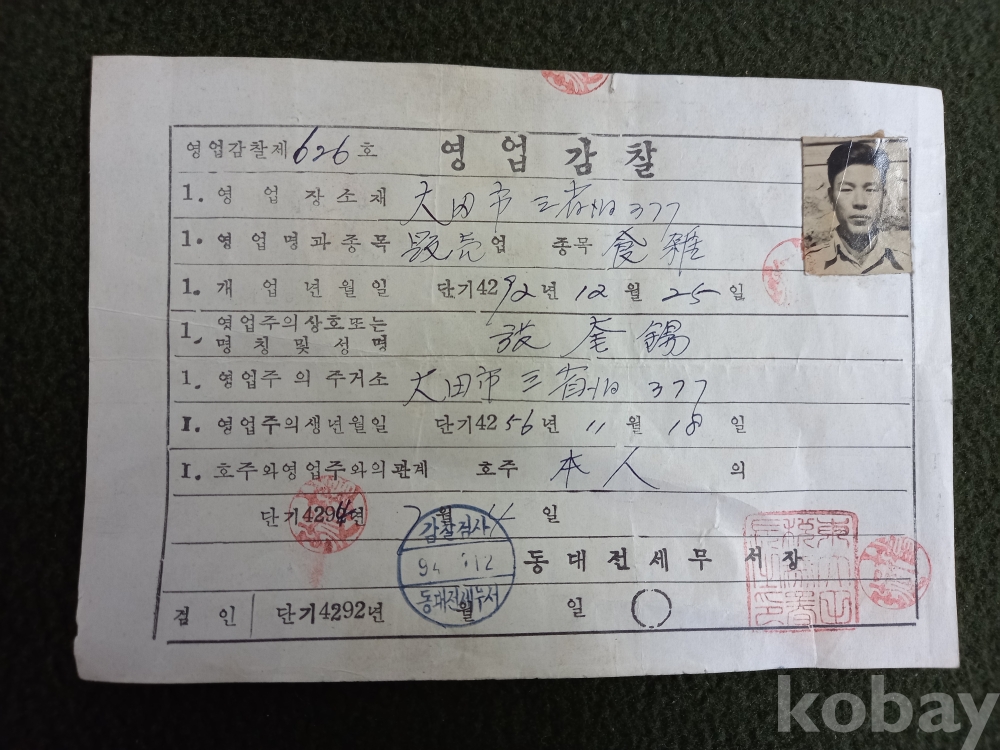 영업감찰제 626 호 영업감찰
1. 영업장소재 大田市 三省洞 377
1. 영업명과종목 販売 업 종목 食雜
1. 개업년월일 단기4292년 12월 25일
1. 영업주의상호또는
명칭및성명 奎錫
1. 영업주의 주거소 大田市 三省洞 377
1. 영업주의생년월일 단기4256년 11월 18일
1. 호주와영업주와의관계 호주 本人 의
단기4294년 7월 일
감찰검사
12
동대전세무서
동대전세무서장
검인 단기4292년 월 일
kobay